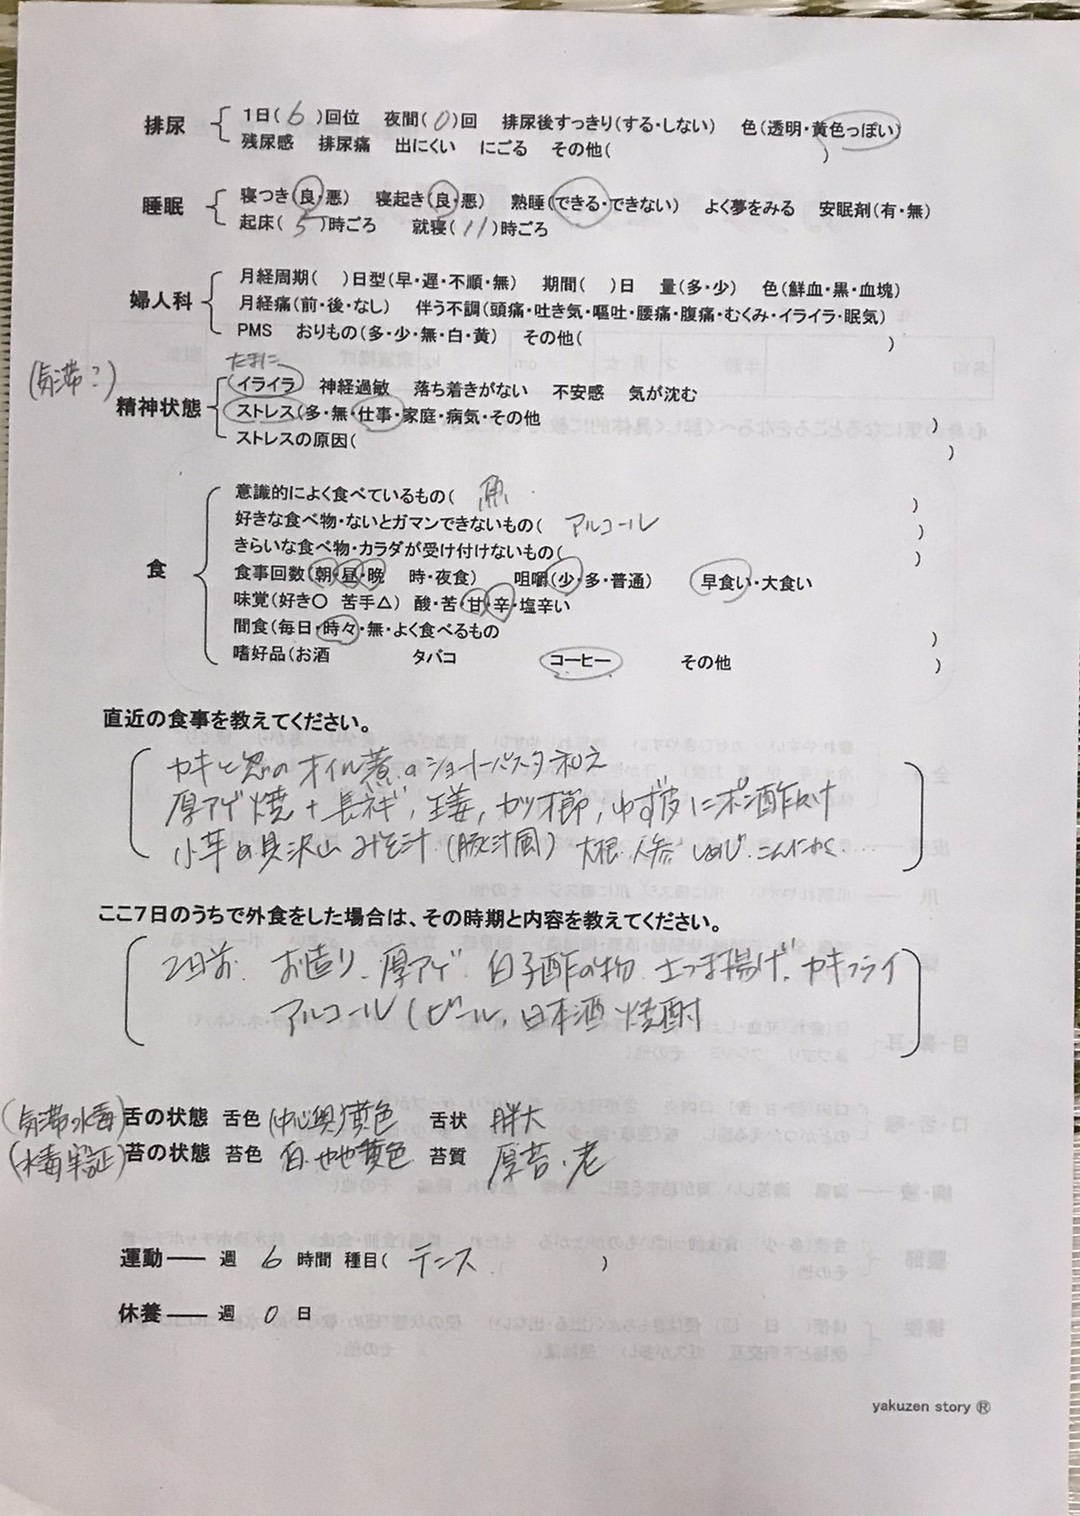 排尿 1日( 6 )回位 夜間( 0 )回 排尿後すっきり(する・しない) 色(透明・黄色っぽい)
残尿感 排尿痛 出にくい にごる その他( )
睡眠 寝つき(良・悪) 寝起き(良・悪) 熟睡(できる・できない) よく夢をみる 安眠剤(有・無)
起床( 5 )時ごろ 就寝( 11 )時ごろ
婦人科 月経周期( )日型(早・遅・不順・無) 期間( )日 量(多・少) 色(鮮血・黒・血塊)
月経痛(前・後・なし) 伴う不調(頭痛・吐き気・嘔吐・腰痛・腹痛・むくみ・イライラ・眠気)
PMS おりもの(多・少・無・白・黄) その他( )
たまに
(気滞?)
精神状態 イライラ 神経過敏 落ち着きがない 不安感 気が沈む
ストレス(多・無・仕事・家庭・病気・その他 )
ストレスの原因( )
食 意識的によく食べているもの( 魚 )
好きな食べ物・ないとガマンできないもの( アルコール )
きらいな食べ物・カラダが受け付けないもの( )
食事回数(朝・昼・晩 時・夜食) 咀嚼(少・多・普通) 早食い・大食い
味覚(好き〇 苦手△) 酸・苦・甘・辛・塩辛い
間食(毎日・時々・無・よく食べるもの )
嗜好品(お酒 タバコ コーヒー その他 )
直近の食事を教えてください。
カキと葱のオイル煮のショートパスタ和え
厚アゲ焼+長ネギ,生姜,カツオ節,ゆず皮にポン酢かけ
小芋の具沢山みそ汁(豚汁風) 大根 人参 しめじ こんにゃく....
ここ7日のうちで外食をした場合は、その時期と内容を教えてください。
2日前 お造り 厚アゲ 白子酢の物 さつま揚げ カキフライ
アルコール(ビール、日本酒 焼酎
(気滞水毒) 舌の状態 舌色 (中心奥)黄色 舌状 胖大
(水毒実証) 苔の状態 苔色 白 やや黄色 苔質 厚苔・老
運動 ― 週 6 時間 種目( テニス )
休養 ― 週 0 日
yakuzen story ®